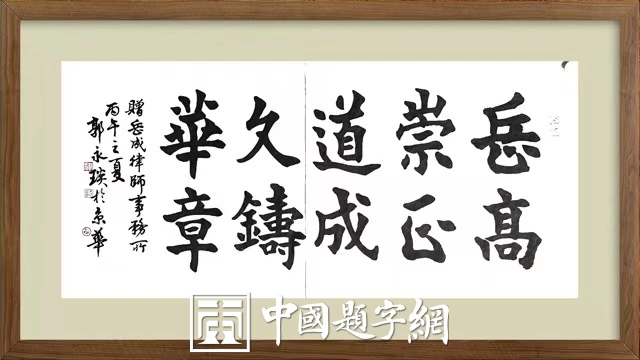 岳高
崇正
道成
文鑄
華章
贈岳成律師事務所
丙午之夏
郭永琰於京華
中國題字網